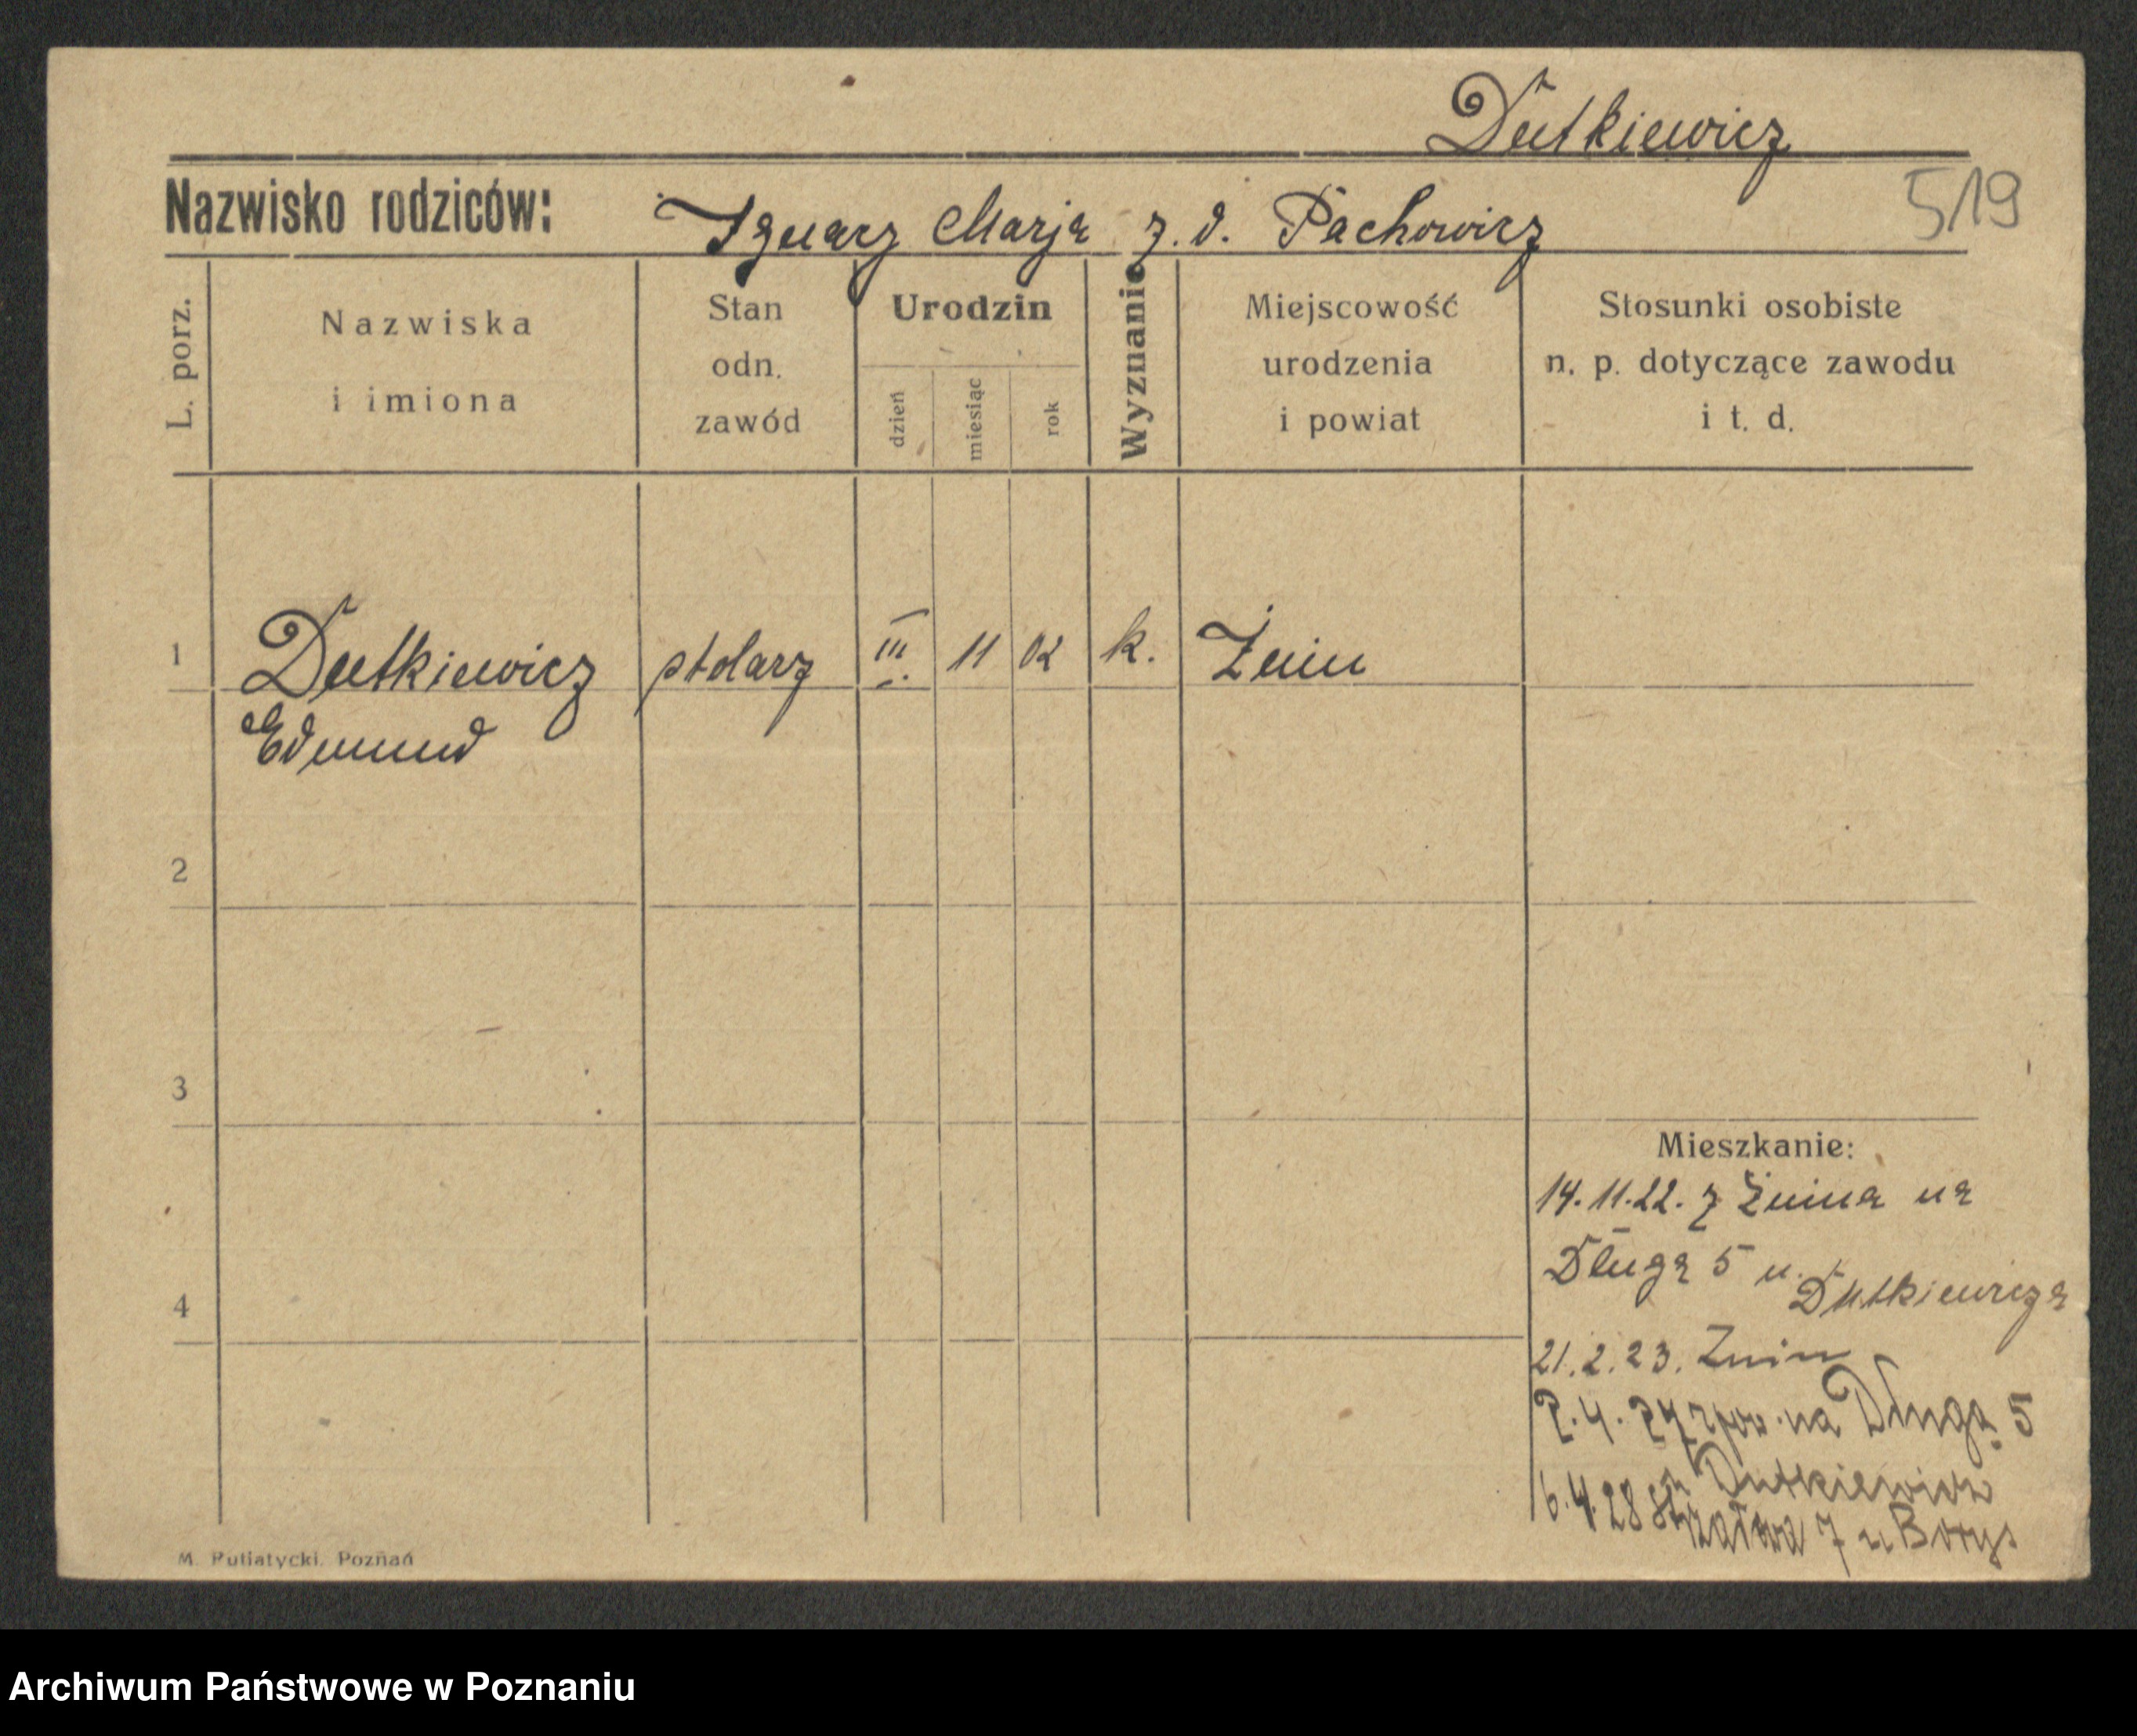 Dutkiewicz
Nazwisko rodziców: Ignacz Marja z. d. Pachowicz 519
L. porz.
Nazwiska i imiona
Stan odn. zawód
Urodzin
dzień
miesiąc
rok
Wyznanie
Miejscowość urodzenia i powiat
Stosunki osobiste n. p. dotyczące zawodu i t. d.
1 Dutkiewicz stolarz III. 11 02 k. Żnin
Edmund
2
3
4
Mieszkanie:
14.11.22. z Żnina na
Długą 5 u. Dutkiewicza
21.2.23. Żnin
2.4. na Długą 5
Dutkiewicz
6.4.28 7 u
M. Putiatycki. Poznań
Archiwum Państwowe w Poznaniu